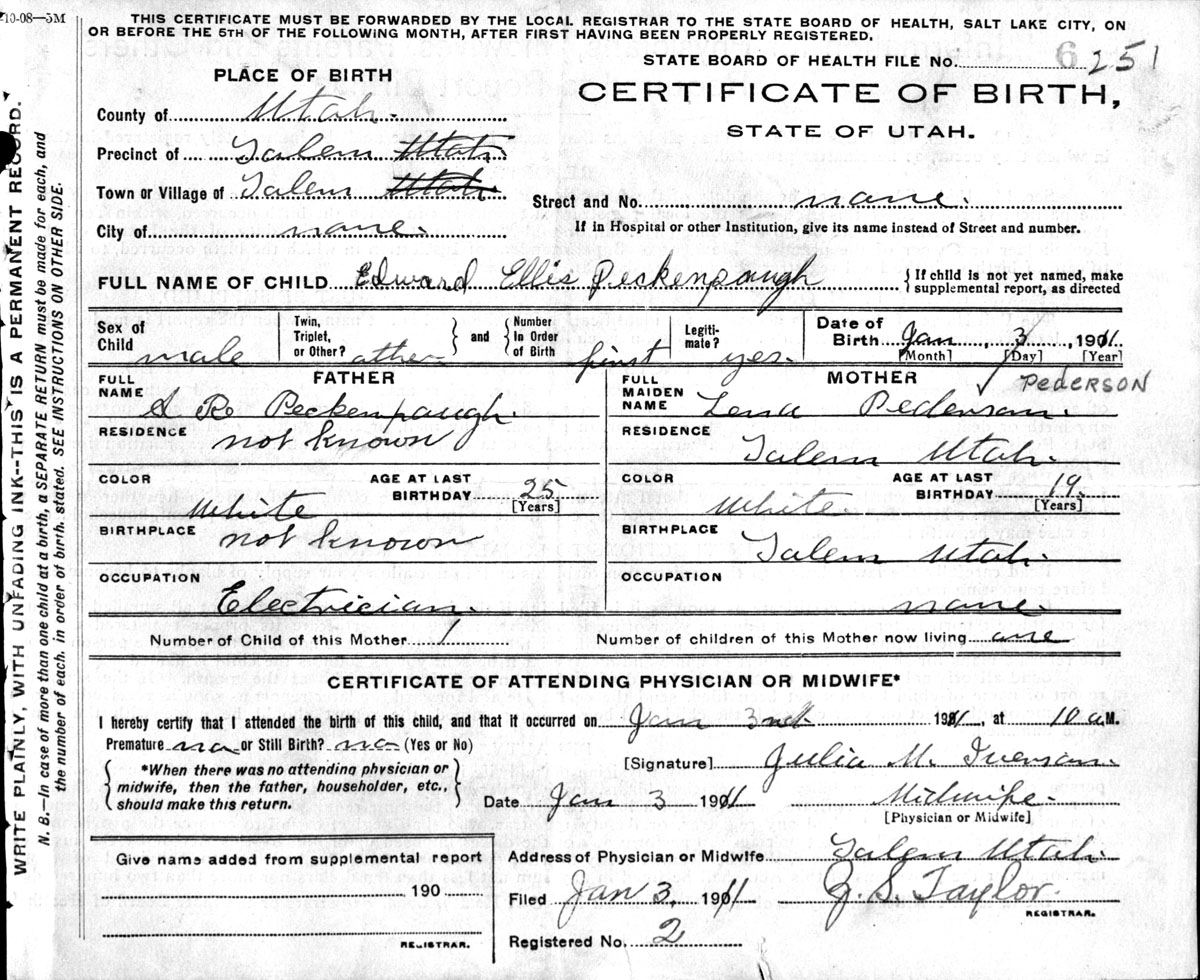 10-08—5M
THIS CERTIFICATE MUST BE FORWARDED BY THE LOCAL REGISTRAR TO THE STATE BOARD OF HEALTH, SALT LAKE CITY, ON
OR BEFORE THE 5TH OF THE FOLLOWING MONTH, AFTER FIRST HAVING BEEN PROPERLY REGISTERED.
STATE BOARD OF HEALTH FILE No. 6 251
PLACE OF BIRTH
CERTIFICATE OF BIRTH,
STATE OF UTAH.
County of Utah.
Precinct of Salem Utah
Town or Village of Salem Utah
Street and No. none.
City of none.
If in Hospital or other Institution, give its name instead of Street and number.
FULL NAME OF CHILD Edward Ellis Peckenpaugh
{If child is not yet named, make
supplemental report, as directed
Sex of Child male
Twin, Triplet, or Other? other
and
Number In Order of Birth first
Legiti-mate? yes.
Date of Birth Jan, 3, 1911
[Month] [Day] [Year]
FATHER
MOTHER
PEDERSON
FULL NAME S Ro Peckenpaugh.
FULL MAIDEN NAME Lena Pederson.
RESIDENCE not known
RESIDENCE Salem Utah.
COLOR White
AGE AT LAST BIRTHDAY 25 [Years]
COLOR White.
AGE AT LAST BIRTHDAY 19. [Years]
BIRTHPLACE not known
BIRTHPLACE Salem Utah.
OCCUPATION Electrician.
OCCUPATION none.
Number of Child of this Mother 1
Number of children of this Mother now living one
CERTIFICATE OF ATTENDING PHYSICIAN OR MIDWIFE*
I hereby certify that I attended the birth of this child, and that it occurred on Jan 3rd 1911, at 10 a M.
Premature no or Still Birth? no (Yes or No)
[Signature] Julia M. Iverson.
{*When there was no attending physician or
midwife, then the father, householder, etc.,
should make this return.}
Date Jan 3 1911
Midwife.
[Physician or Midwife]
Give name added from supplemental report
Address of Physician or Midwife Salem Utah.
190
Filed Jan 3, 1911
Z. S. Taylor.
REGISTRAR.
REGISTRAR.
Registered No. 2
WRITE PLAINLY, WITH UNFADING INK--THIS IS A PERMANENT RECORD.
N. B.—In case of more than one child at a birth, a SEPARATE RETURN must be made for each, and
the number of each, in order of birth, stated. SEE INSTRUCTIONS ON OTHER SIDE.